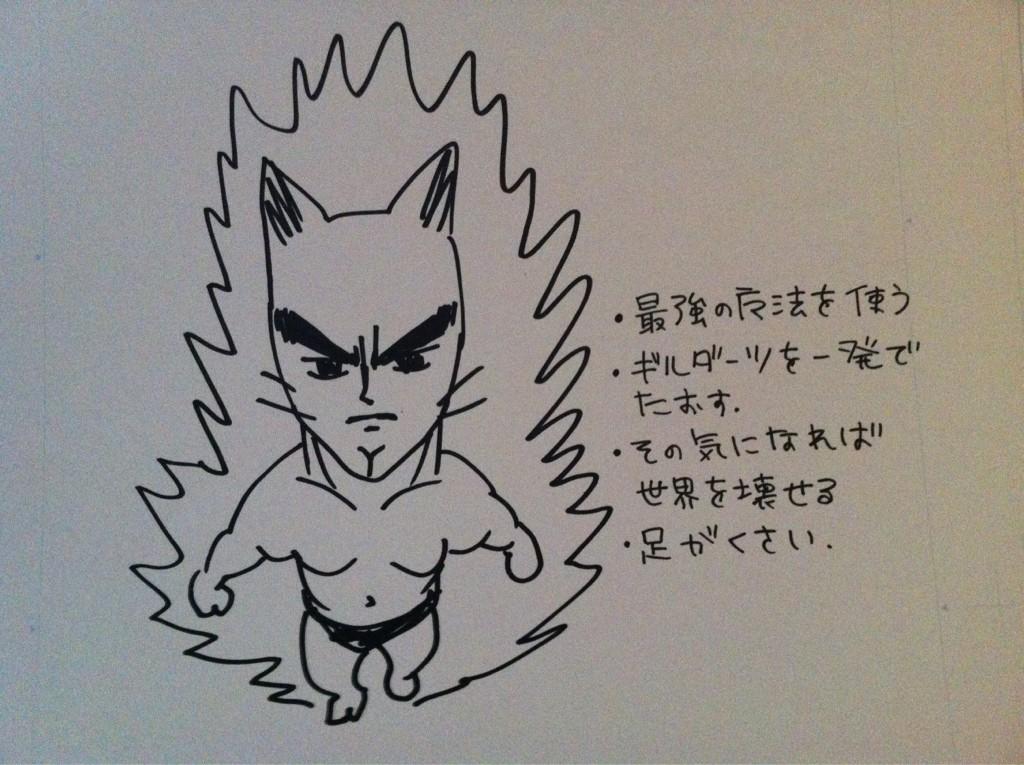 ・最強の魔法を使う
・ギルダーツを一発で
たおす.
・その気になれば
世界を壊せる
・足がくさい.